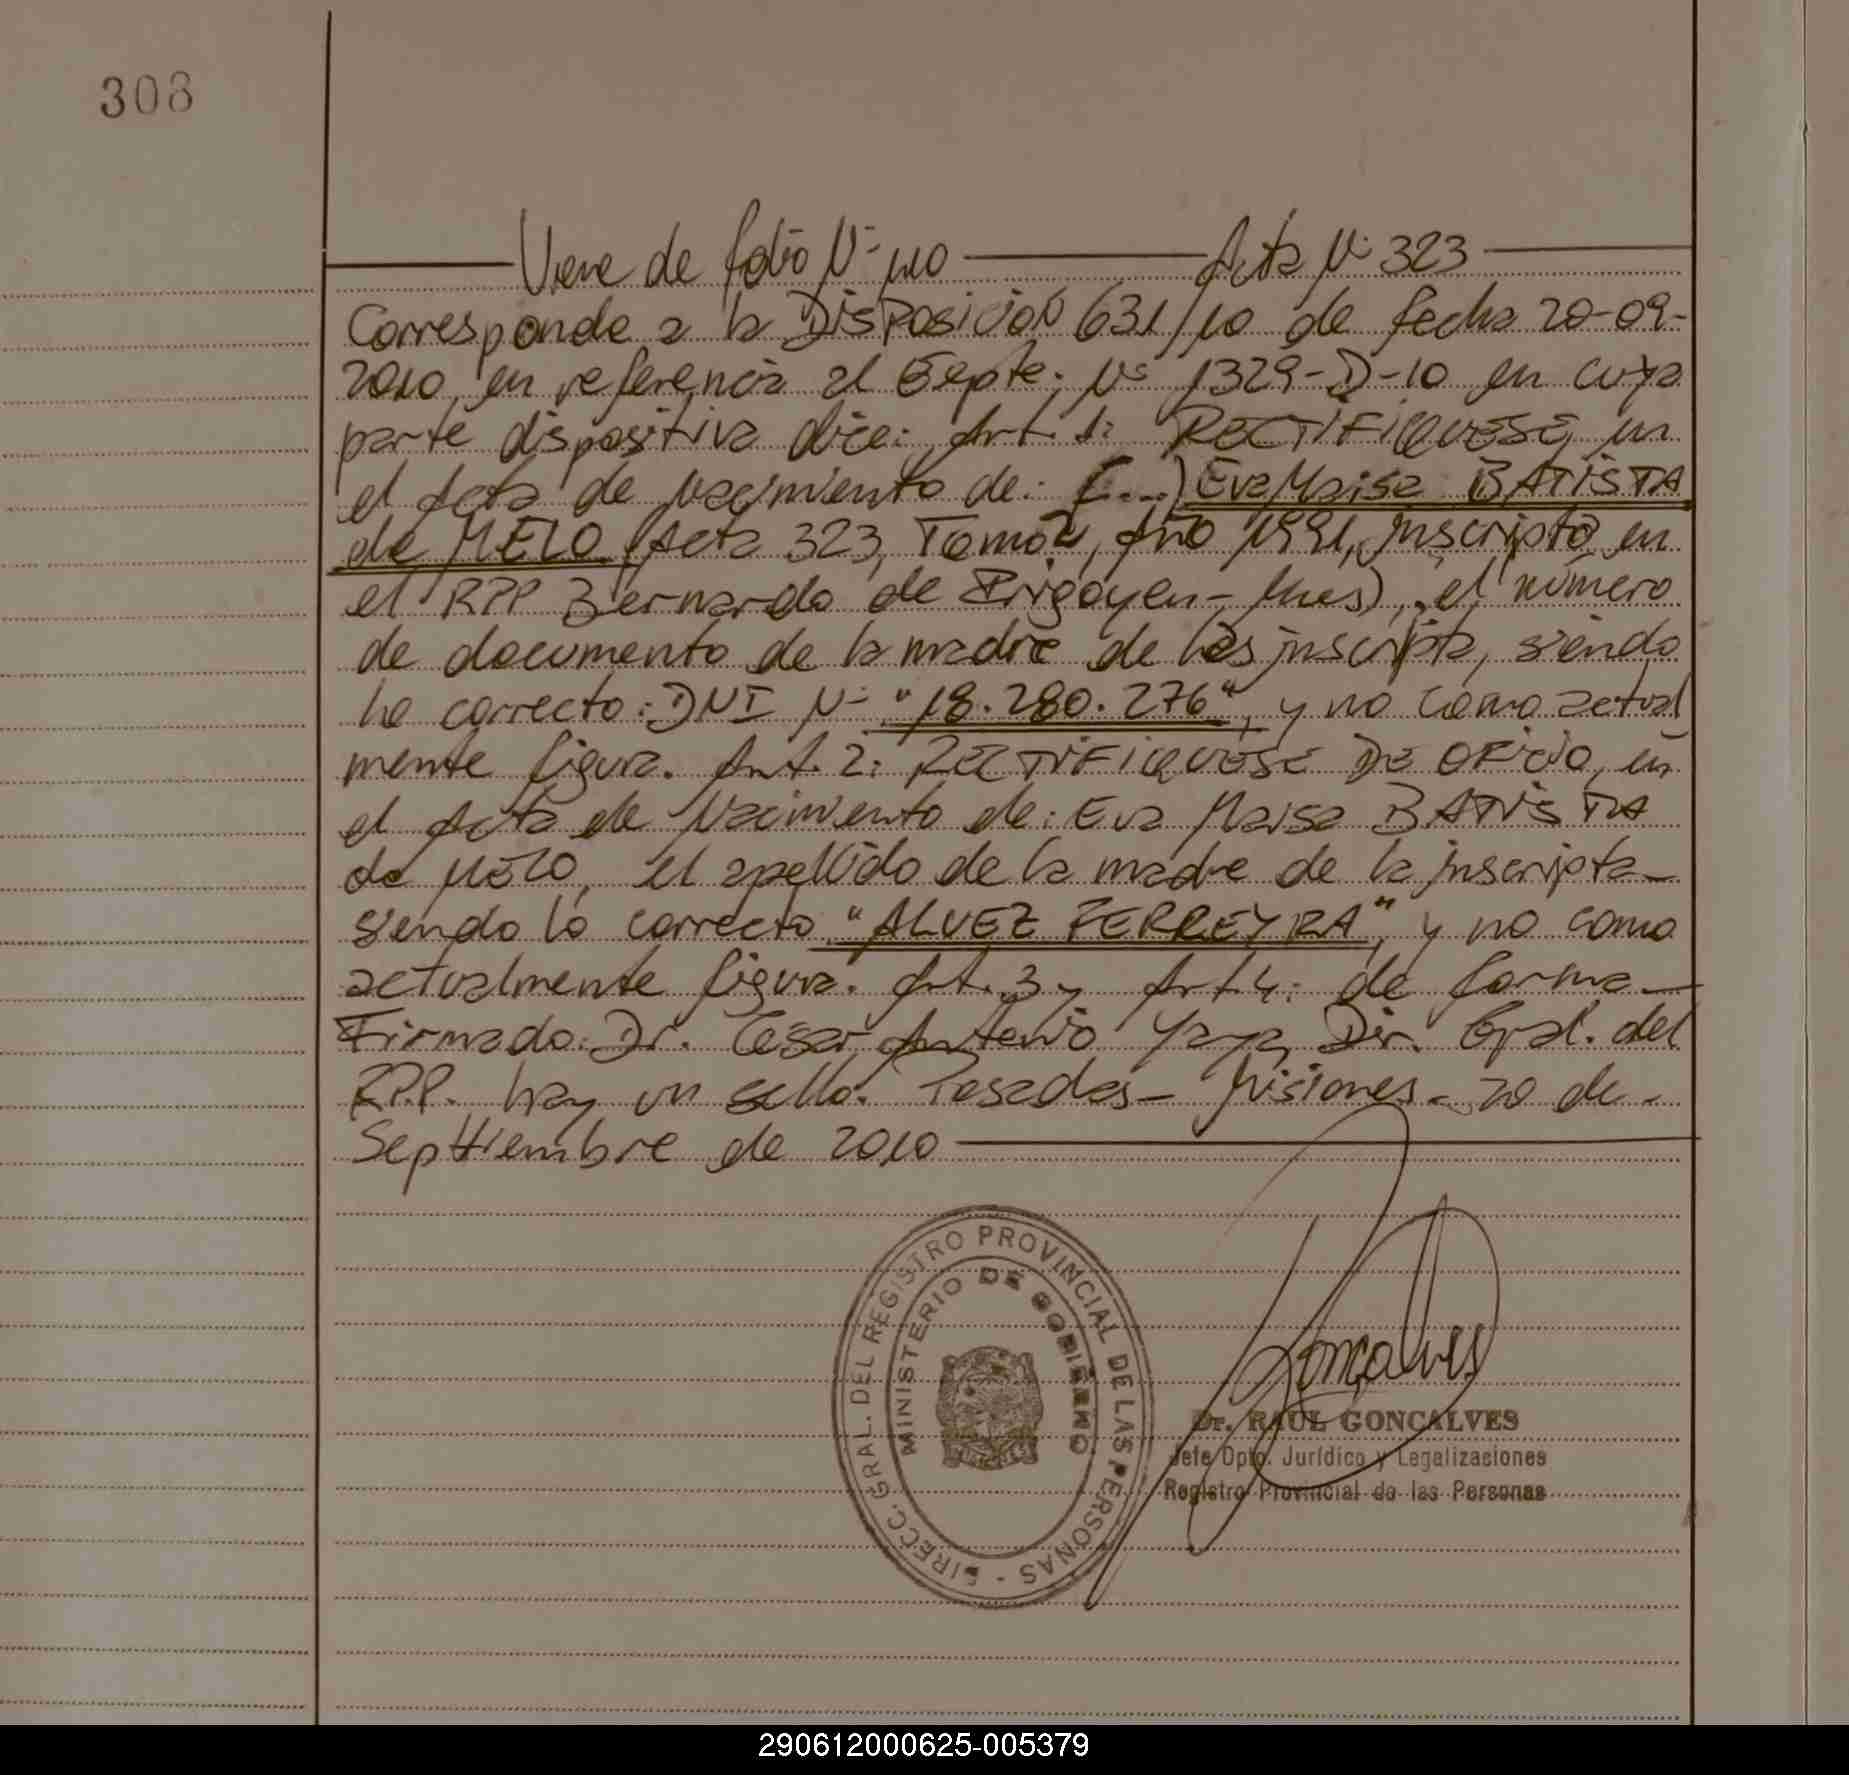 308
Viene de folio Nº 110 Acta Nº 323
Corresponde a la DISPOSICION 631/10 de fecha 20-09-
2010, en referencia al Expte. Nº 1329-D-10 en cuya
parte dispositiva dice: Art. 1: RECTIFIQUESE, en
el Acta de Nacimiento de: (...) Eva Maisa BATISTA
de MELO (Acta 323, Tomo 2, Año 1991, Inscripta en
el RPP Bernardo de Irigoyen - Mnes), el número
de documento de la madre de la inscripta, siendo
lo correcto: DNI Nº "18.280.276", y no como actual
mente figura. Art. 2: RECTIFIQUESE DE OFICIO, en
el Acta de Nacimiento de: Eva Maisa BATISTA
de MELO, el apellido de la madre de la inscripta-
siendo lo correcto "ALVEZ FERREYRA", y no como
actualmente figura. Art. 3 y Art. 4: de forma-
Firmado: Dr. César Antonio Yaya, Dir. Gral. del
RPP. hay un sello. Posadas - Misiones - 20 de -
Septtiembre de 2010
DIRECC. GRAL. DEL REGISTRO PROVINCIAL DE LAS PERSONAS -
MINISTERIO DE GOBIERNO
Gonçalves
Dr. RAUL GONCALVES
Jefe Dpto. Jurídico y Legalizaciones
Registro Provincial de las Personas
290612000625-005379